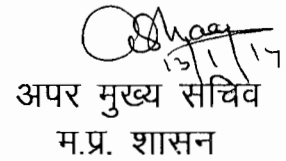 13/1/17
अपर मुख्य सचिव
म.प्र. शासन